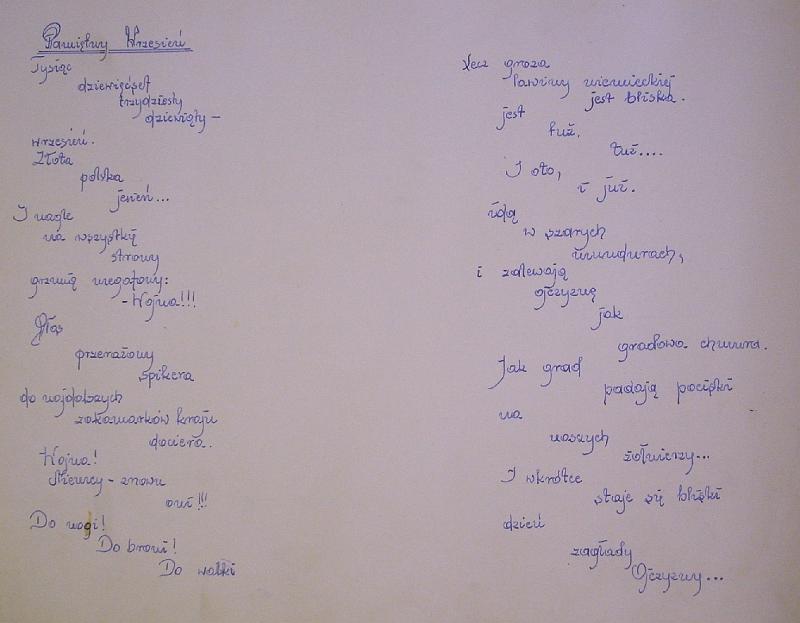 Pamiętny Wrzesień
Tysiąc
dziewięćset
trzydziesty
dziewiąty –
wrzesień.
Złota
polska
jesień...
I nagle
na wszystkie
strony
grzmią megafony:
- Wojna!!!
Głos
przerażony
spikera
do najdalszych
zakamarków kraju
dociera.
Wojna!
Niemcy - znowu
oni!!!
Do nogi!
Do broni!
Do walki
Lecz groza
lawiny niemieckiej
jest bliska.
jest
tuż,
tuż....
I oto,
i już.
idą
w szarych
mundurach,
i zalewają
ojczyznę
jak
gradowa chmura.
Jak grad
padają pociski
na
naszych
żołnierzy...
I wkrótce
staje się bliski
dzień
zagłady
Ojczyzny...